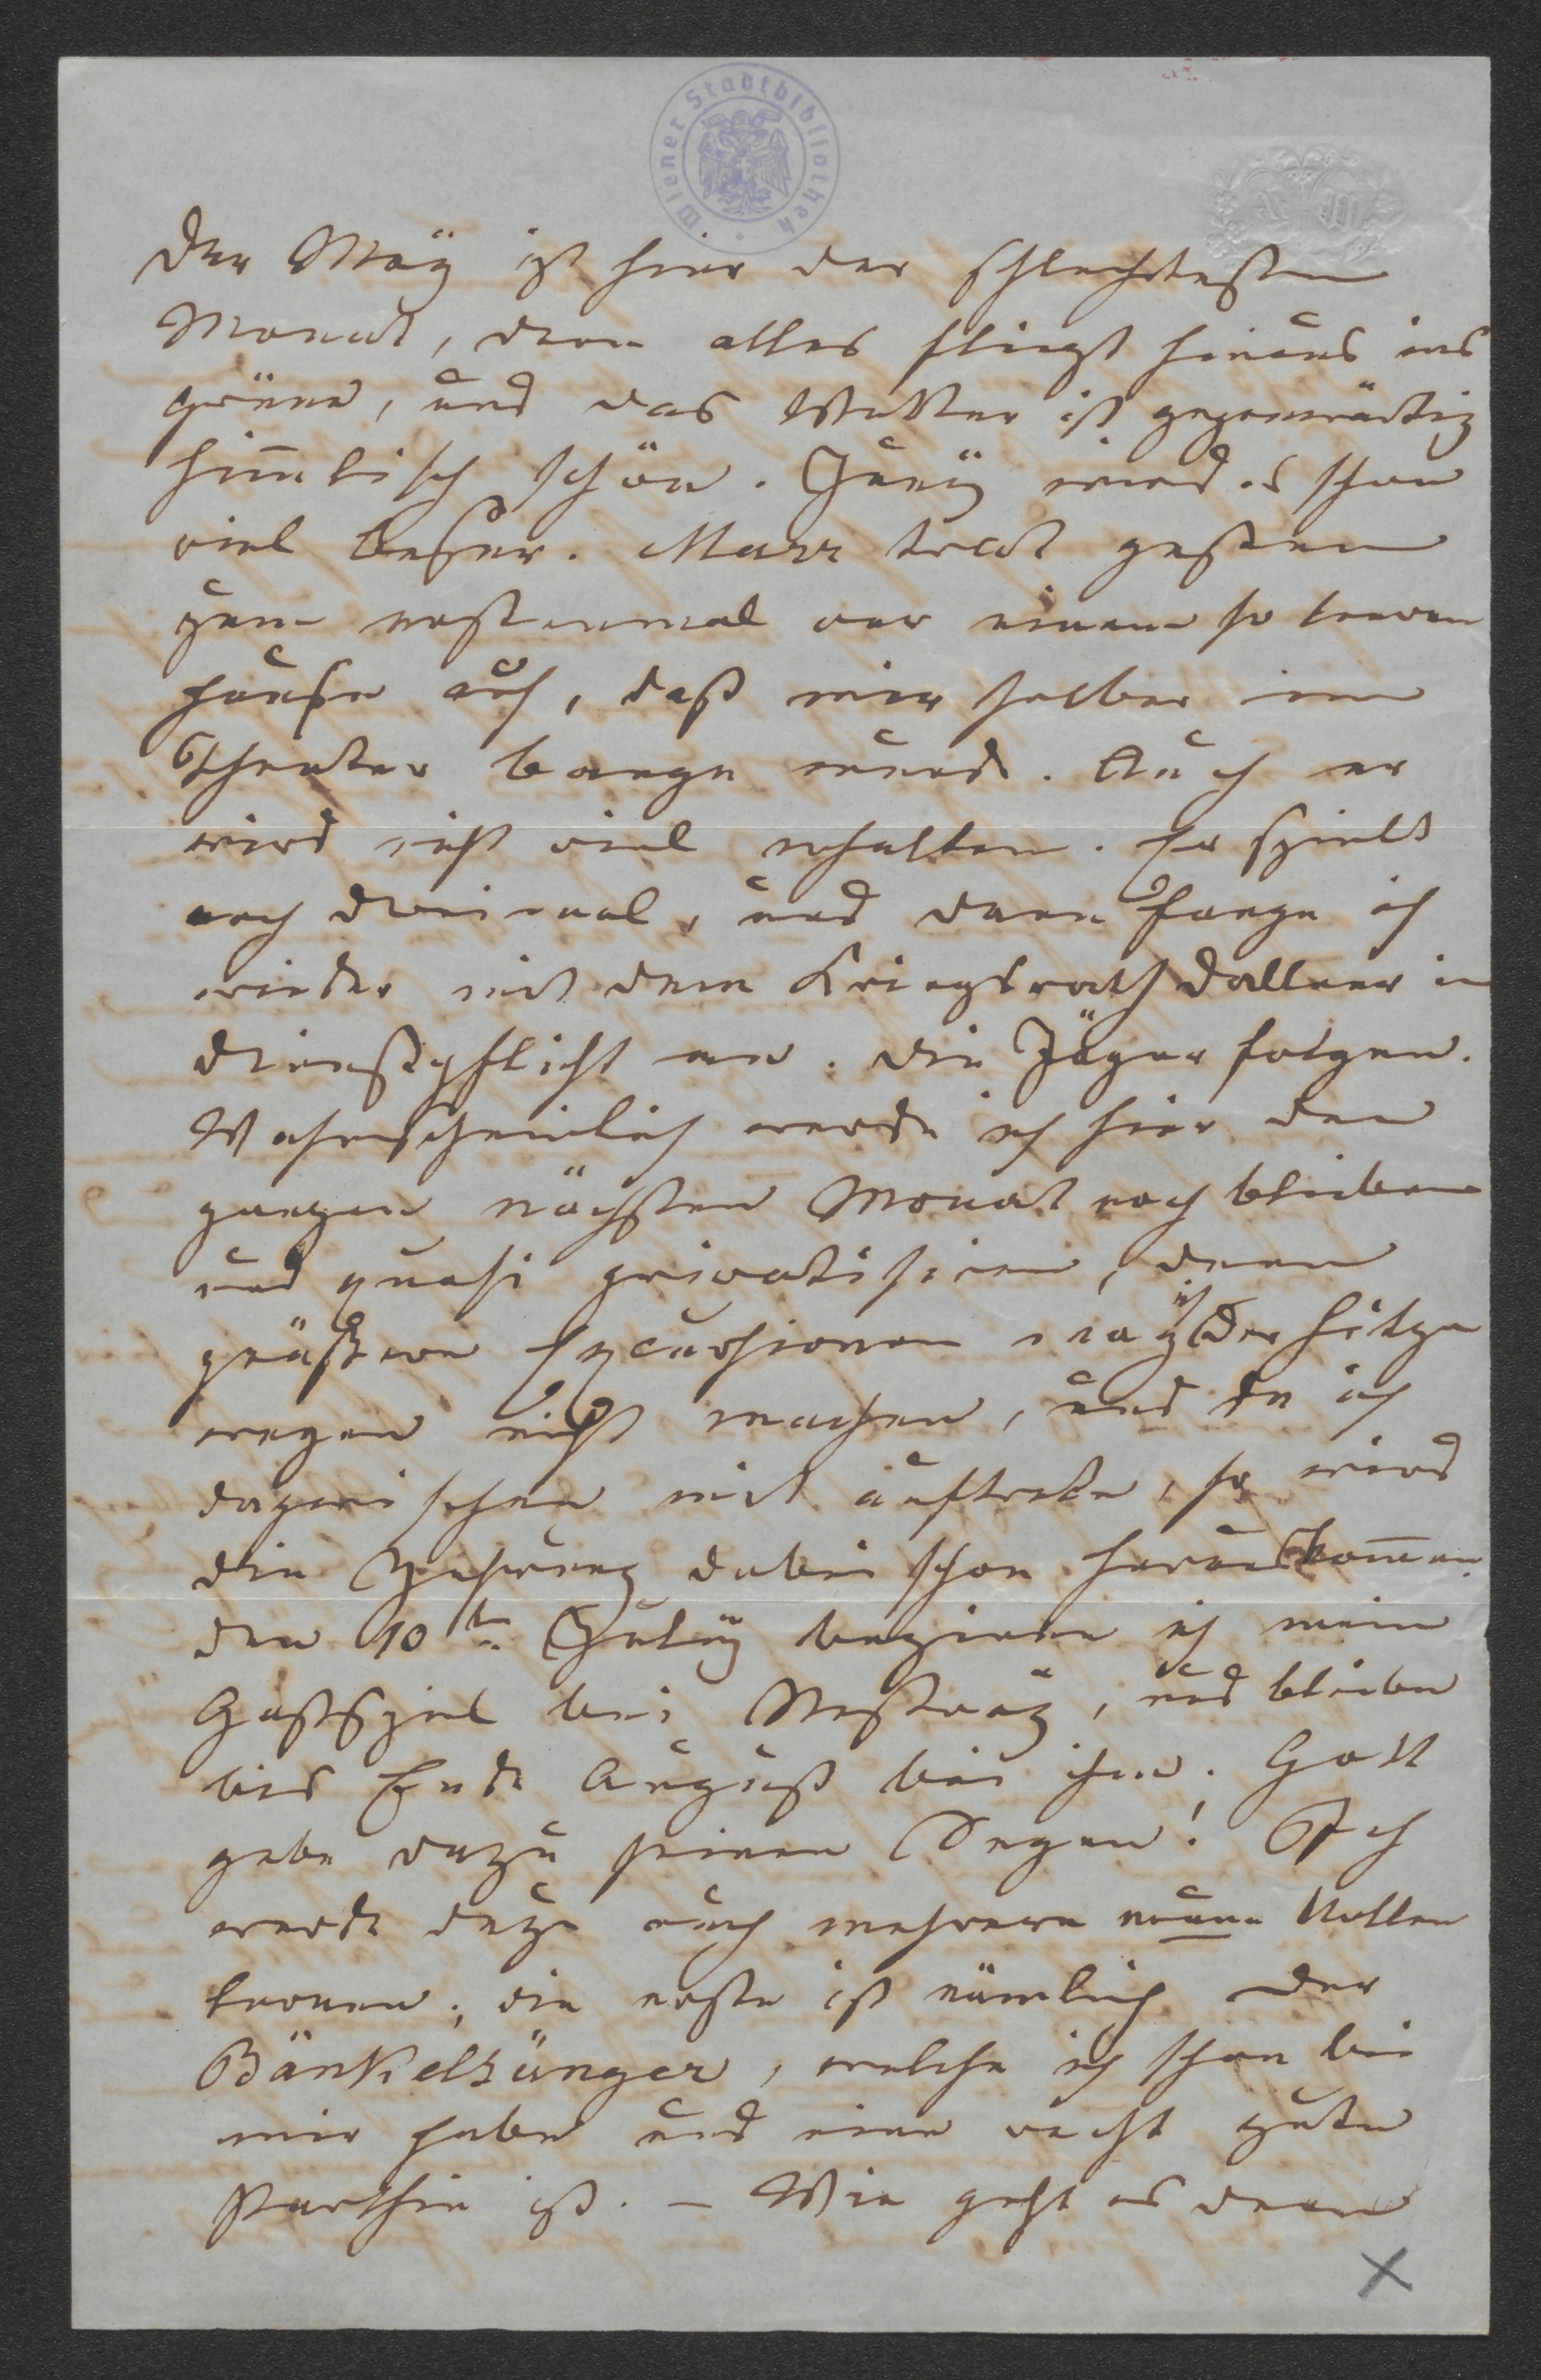 Wiener Stadtbibliothek
Der May ist hier der schlechteste
Monat, denn alles fliegt hinaus ins
grüne, und das Wetter ist gegenwärtig
him̅lisch schön. Juny wird es schon
viel besser. Marr tratt gestern
zum erstenmal vor einem so leeren
Hause auf, daß mir selber im
Theater bange wurde. Auch er
wird nicht viel erhalten. Er spielt
noch dreimal, und dann fange ich
wieder mit dem Kriegsrath Dallner in
Dienstpflicht an. Die Jäger folgen.
Wahrscheinlich werde ich hier den
ganzen nächsten Monat noch bleiben
und quasi privatisiren, denn
größere Excursionen mag ich der Hitze
wegen nicht machen, und da ich
dazwischen mit auftrete, so wird
die Zehrung dabei schon herauskom̅en.
Den 10ten July beginne ich mein
Gastspiel bei Nestroy, und bleibe
bis Ende August bei ihm. Gott
gebe dazu seinen Segen! Ich
werde dazu auch mehrere neue Rollen
lernen; die erste ist nämlich der
Bänkelsänger, welche ich schon bei
mir habe und eine recht gute
Parthie ist. – Wie geht es denn